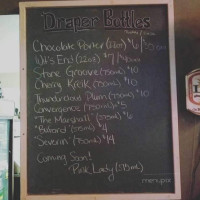 Draper Bottles
Chocolate Porter (22oz) $6
Wit's End (22oz) $7
Stone Groove (750ml) $10
Cherry Kriek (750ml) $10
Thunderpaws Plum (750ml) $10
Convergence (750ml) $5
"The Marshall" (375ml) $6
"Bastard" (375ml) $4
"Severin" (750ml) $14
Coming Soon!
Pink Lady (375ml)